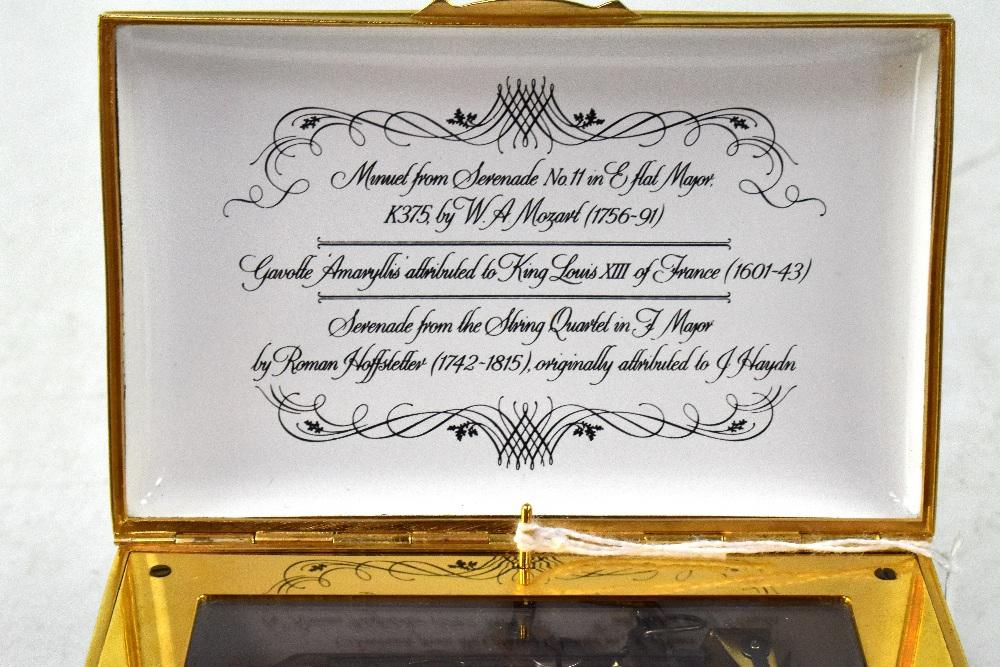 Minuet from Serenade No. 11 in E flat Major,
K375, by W. A Mozart (1756-91)
Gavotte 'Amaryllis' attributed to King Louis XIII of France (1601-43)
Serenade from the String Quartet in F Major
by Roman Hoffstetter (1742-1815), originally attributed to J Haydn